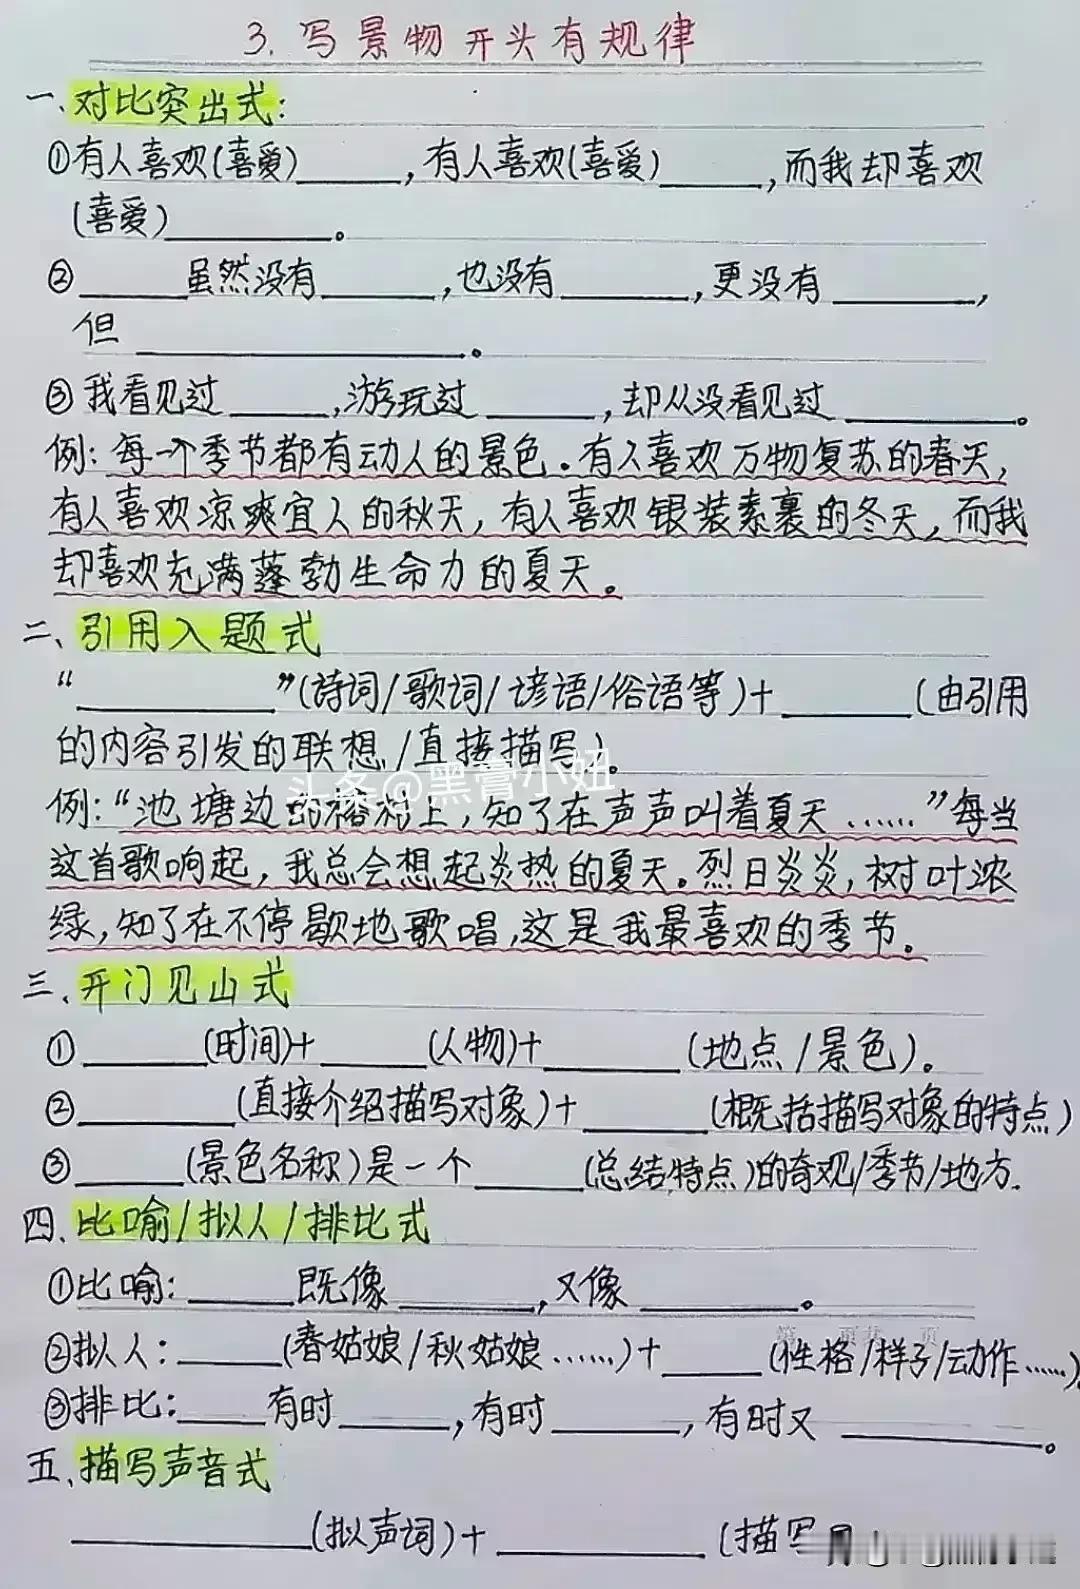 3. 写景物开头有规律
一、对比突出式:
①有人喜欢(喜爱)______,有人喜欢(喜爱)______,而我却喜欢
(喜爱)______。
②______虽然没有______,也没有______,更没有______,
但______。
③我看见过______,游玩过______,却从没看见过______。
例:每一个季节都有动人的景色。有人喜欢万物复苏的春天,
有人喜欢凉爽宜人的秋天,有人喜欢银装素裹的冬天,而我
却喜欢充满蓬勃生命力的夏天。
二、引用入题式
“______”(诗词/歌词/谚语/俗语等)+______(由引用
的内容引发的联想/直接描写)。
头条@黑膏小妞
例:“池塘边的榕树上,知了在声声叫着夏天……”每当
这首歌响起,我总会想起炎热的夏天。烈日炎炎,树叶浓
绿,知了在不停歇地歌唱,这是我最喜欢的季节。
三、开门见山式
①______(时间)+______(人物)+______(地点/景色)。
②______(直接介绍描写对象)+______(概括描写对象的特点)
③______(景色名称)是一个______(总结特点)的奇观/季节/地方.
四、比喻/拟人/排比式
①比喻:______既像______,又像______。
②拟人:______(春姑娘/秋姑娘……)+______(性格/样子/动作……)。
③排比:______有时______,有时______,有时又______。
五、描写声音式
______(拟声词)+______(描写